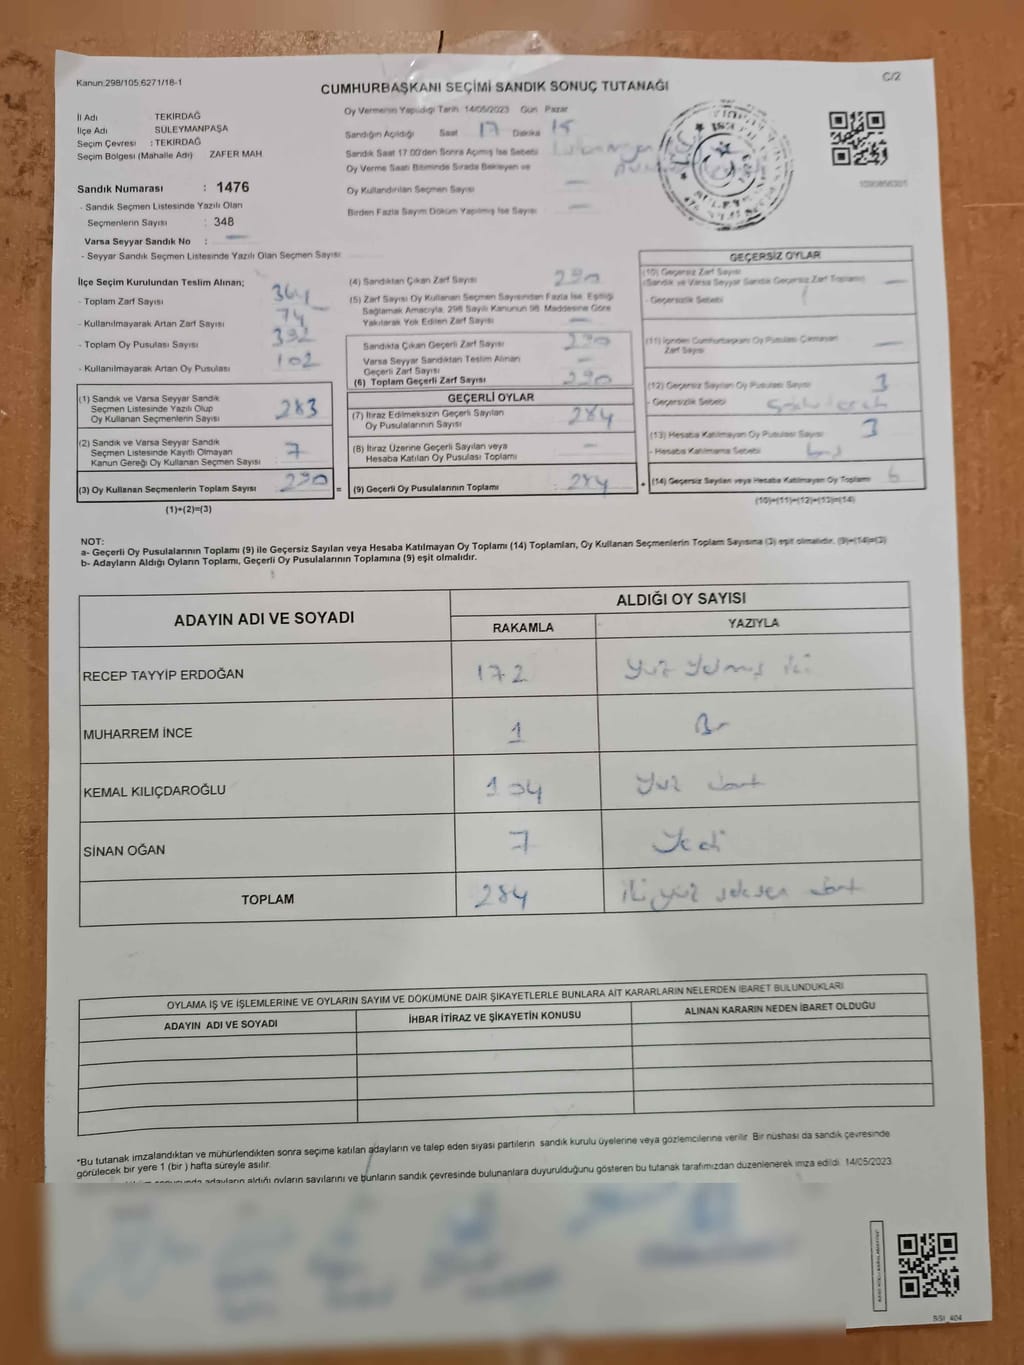 Kanun:298/105;6271/18-1
C/2
CUMHURBAŞKANI SEÇİMİ SANDIK SONUÇ TUTANAĞI
İl Adı TEKİRDAĞ
İlçe Adı SÜLEYMANPAŞA
Seçim Çevresi : TEKİRDAĞ
Seçim Bölgesi (Mahalle Adı) ZAFER MAH
Sandık Numarası : 1476
- Sandık Seçmen Listesinde Yazılı Olan
Seçmenlerin Sayısı : 348
Varsa Seyyar Sandık No : —
- Seyyar Sandık Seçmen Listesinde Yazılı Olan Seçmen Sayısı:
Oy Vermenin Yapıldığı Tarih 14/05/2023 Gün Pazar
Sandığın Açıldığı Saat 17 Dakika 15
Sandık Saat 17.00'den Sonra Açılmış İse Sebebi
Oy Verme Saati Bitiminde Sırada Bekleyen ve
Oy Kullandırılan Seçmen Sayısı —
Birden Fazla Sayım Döküm Yapılmış İse Sayısı —
İlçe Seçim Kurulundan Teslim Alınan;
- Toplam Zarf Sayısı 364
- Kullanılmayarak Artan Zarf Sayısı 74
- Toplam Oy Pusulası Sayısı 392
- Kullanılmayarak Artan Oy Pusulası 102
(1) Sandık ve Varsa Seyyar Sandık
Seçmen Listesinde Yazılı Olup
Oy Kullanan Seçmenlerin Sayısı 283
(2) Sandık ve Varsa Seyyar Sandık
Seçmen Listesinde Kayıtlı Olmayan
Kanun Gereği Oy Kullanan Seçmen Sayısı : 7
(3) Oy Kullanan Seçmenlerin Toplam Sayısı 290
(1)+(2)=(3)
(4) Sandıktan Çıkan Zarf Sayısı 290
(5) Zarf Sayısı Oy Kullanan Seçmen Sayısından Fazla İse, Eşitliği
Sağlamak Amacıyla, 298 Sayılı Kanunun 98. Maddesine Göre
Yakılarak Yok Edilen Zarf Sayısı —
Sandıkta Çıkan Geçerli Zarf Sayısı 290
Varsa Seyyar Sandıktan Teslim Alınan
Geçerli Zarf Sayısı —
(6) Toplam Geçerli Zarf Sayısı 290
GEÇERLİ OYLAR
(7) İtiraz Edilmeksizin Geçerli Sayılan
Oy Pusulalarının Sayısı : 284
(8) İtiraz Üzerine Geçerli Sayılan veya
Hesaba Katılan Oy Pusulası Toplamı —
= (9) Geçerli Oy Pusulalarının Toplamı : 284
GEÇERSİZ OYLAR
(10) Geçersiz Zarf Sayısı
(Sandık ve Varsa Seyyar Sandık Geçersiz Zarf Toplamı) —
- Geçersizlik Sebebi
(11) İçinden Cumhurbaşkanı Oy Pusulası Çıkmayan
Zarf Sayısı —
(12) Geçersiz Sayılan Oy Pusulası Sayısı 3
- Geçersizlik Sebebi
(13) Hesaba Katılmayan Oy Pusulası Sayısı 3
- Hesaba Katılmama Sebebi
+ (14) Geçersiz Sayılan veya Hesaba Katılmayan Oy Toplamı 6
(10)+(11)+(12)+(13)=(14)
NOT:
a- Geçerli Oy Pusulalarının Toplamı (9) ile Geçersiz Sayılan veya Hesaba Katılmayan Oy Toplamı (14) Toplamları, Oy Kullanan Seçmenlerin Toplam Sayısına (3) eşit olmalıdır. (9)+(14)=(3)
b- Adayların Aldığı Oyların Toplamı, Geçerli Oy Pusulalarının Toplamına (9) eşit olmalıdır.
ADAYIN ADI VE SOYADI
ALDIĞI OY SAYISI
RAKAMLA YAZIYLA
RECEP TAYYİP ERDOĞAN 172 Yüz Yetmiş iki
MUHARREM İNCE 1 Bir
KEMAL KILIÇDAROĞLU 104 Yüz dört
SİNAN OĞAN 7 Yedi
TOPLAM 284 iki yüz seksen dört
OYLAMA İŞ VE İŞLEMLERİNE VE OYLARIN SAYIM VE DÖKÜMÜNE DAİR ŞİKAYETLERLE BUNLARA AİT KARARLARIN NELERDEN İBARET BULUNDUKLARI
ADAYIN ADI VE SOYADI İHBAR İTİRAZ VE ŞİKAYETİN KONUSU ALINAN KARARIN NEDEN İBARET OLDUĞU
*Bu tutanak imzalandıktan ve mühürlendikten sonra seçime katılan adayların ve talep eden siyasi partilerin sandık kurulu üyelerine veya gözlemcilerine verilir. Bir nüshası da sandık çevresinde
görülecek bir yere 1 (bir) hafta süreyle asılır.
sonucunda adayların aldığı oyların sayılarını ve bunların sandık çevresinde bulunanlara duyurulduğunu gösteren bu tutanak tarafımızdan düzenlenerek imza edildi. 14/05/2023